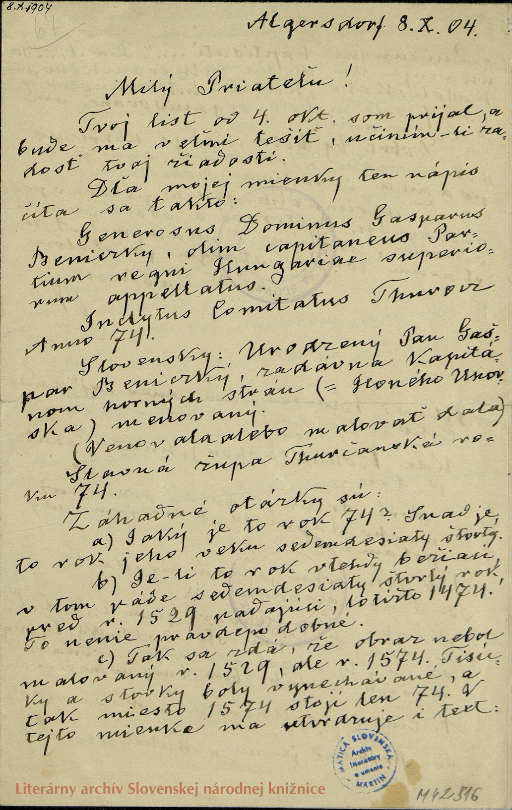 8.X.1904
Algersdorf 8.X.04.
Milý Priateľu!
Tvoj list od 4. okt. som prijal, a
bude ma veľmi tešiť, učiním-li za-
dosť tvoj žiadosti.
Dľa mojej mienky ten nápis
číta sa takto:
Generosus Dominus Gasparus
Beniczky, olim capitaneus Par-
tium regni Hungariae superio-
rum appellatus.
Inclytus Comitatus Thurocz
Anno 74.
Slovensky: Urodzený Pan Gaš-
par Beniczky, zadávna Kapitá-
nom horných strán (= Horného Uhor-
ska) menovaný.
(Venovala alebo malovať dala)
Slavná župa Thurčianská ro-
ku 74.
Záhadné otázky sú:
a) Jaký je to rok 74? Snaď je
to rok jeho veku sedemdesiaty štvrtý.
b) Je-li to rok vtedy bežiaci,
v tom páde sedemdesiaty štvrtý rok,
pred r. 1529 padajúci, totižto 1474.,
To nenie pravdepodobné.
c) Tak sa zdá, že obraz nebol
malovaný r. 1529, ale r. 1574. Tisíc-
ky a stovky boly vynechávané, a
tak miesto 1574 stojí len 74. V
tejto mienke ma utvrdzuje i text:
MATICA SLOVENSKÁ
Archív
literatúry
a umenia
MARTIN
Literárny archív Slovenskej národnej knižnice
M42816